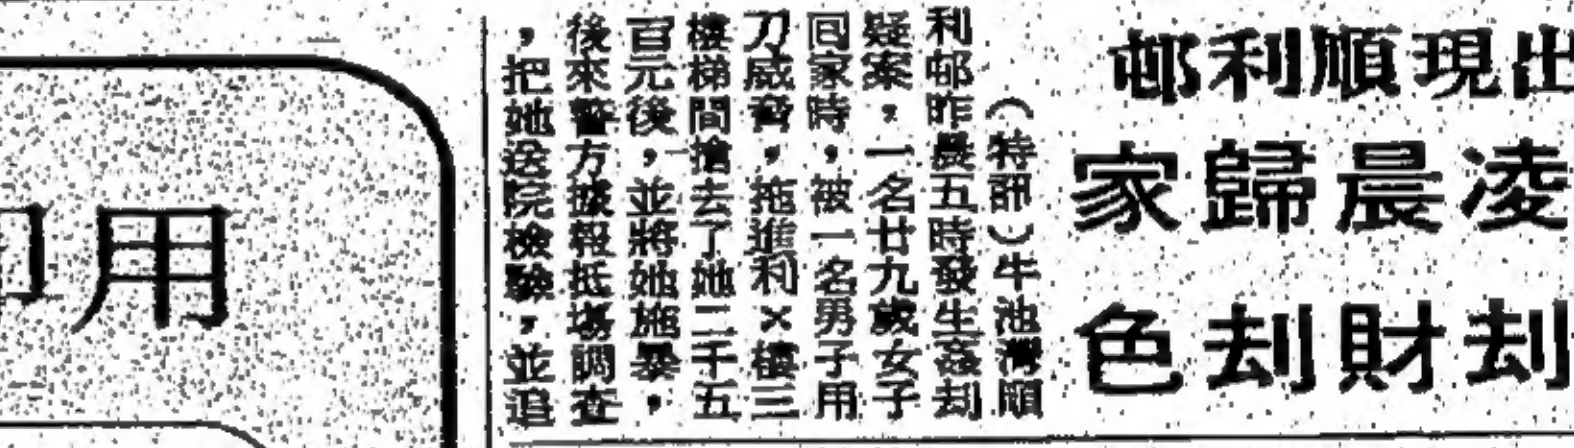 出現順利邨
凌晨歸家
刦財刦色
（特訊）牛池灣順
利邨昨晨五時發生姦刦
疑案，一名廿九歲女子
回家時，被一名男子用
刀威脅，拖進利×樓三
樓梯間搶去了她二千五
百元後，並將她施暴，
後來警方據報抵場調查
，把她送院檢驗，並追
用